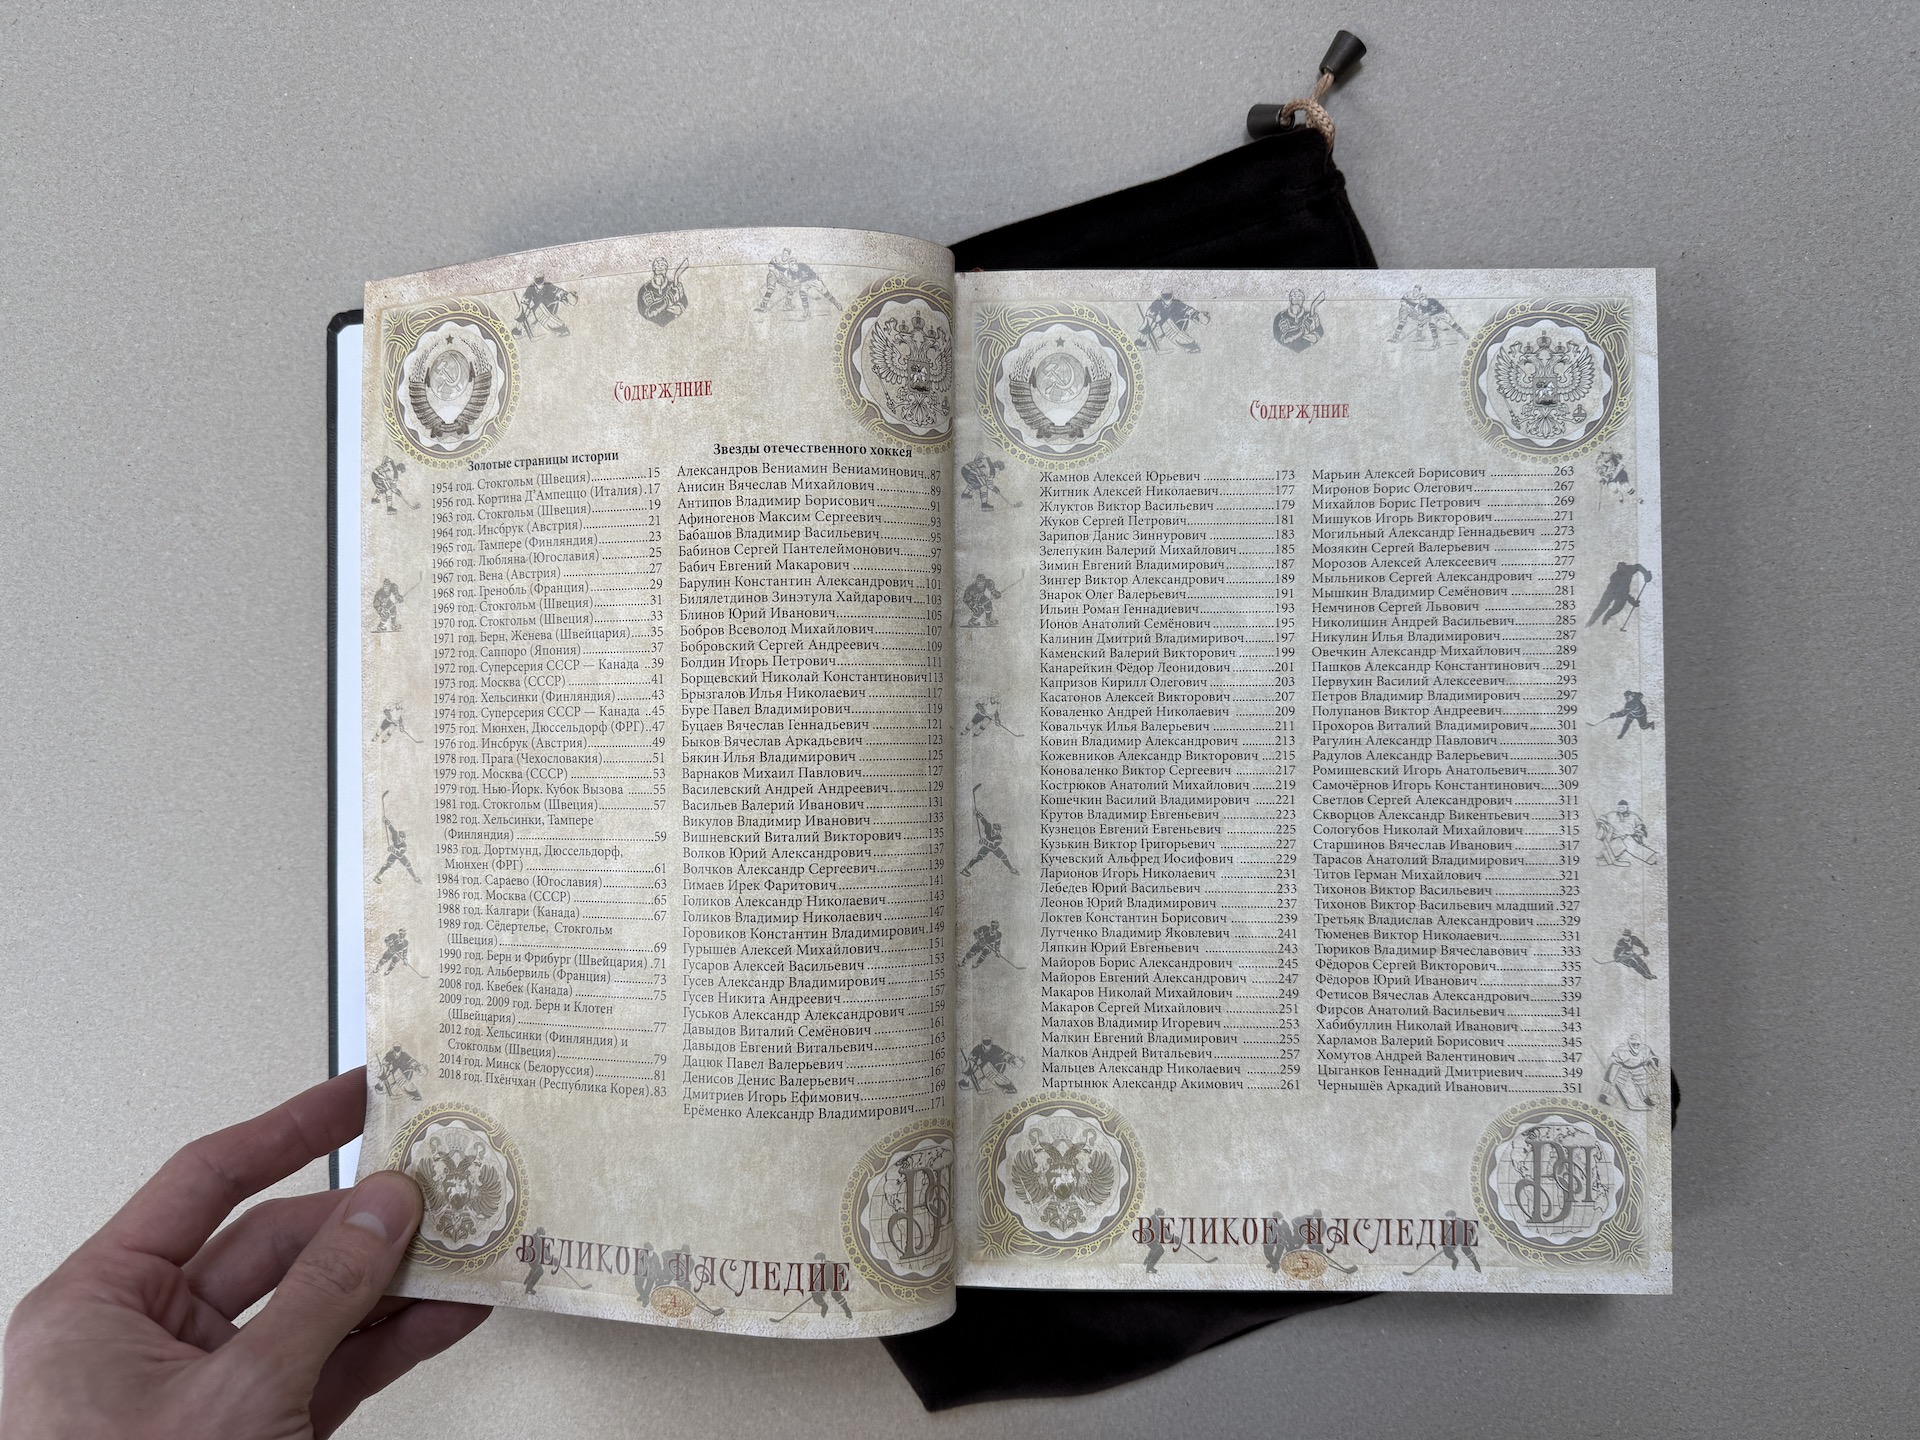 Содержание
Золотые страницы истории
1954 год. Стокгольм (Швеция)..............15
1956 год. Кортина Д'Ампеццо (Италия).17
1963 год. Стокгольм (Швеция)..............19
1964 год. Инсбрук (Австрия)..............21
1965 год. Тампере (Финляндия)..............23
1966 год. Любляна (Югославия)..............25
1967 год. Вена (Австрия)..............27
1968 год. Гренобль (Франция)..............29
1969 год. Стокгольм (Швеция)..............31
1970 год. Стокгольм (Швеция)..............33
1971 год. Берн, Женева (Швейцария).....35
1972 год. Саппоро (Япония)..............37
1972 год. Суперсерия СССР — Канада ..39
1973 год. Москва (СССР)..............41
1974 год. Хельсинки (Финляндия).......43
1974 год. Суперсерия СССР — Канада ..45
1975 год. Мюнхен, Дюссельдорф (ФРГ)..47
1976 год. Инсбрук (Австрия)..............49
1978 год. Прага (Чехословакия)..............51
1979 год. Москва (СССР)..............53
1979 год. Нью-Йорк. Кубок Вызова .......55
1981 год. Стокгольм (Швеция)..............57
1982 год. Хельсинки, Тампере
(Финляндия)..............59
1983 год. Дортмунд, Дюссельдорф,
Мюнхен (ФРГ)..............61
1984 год. Сараево (Югославия)..............63
1986 год. Москва (СССР)..............65
1988 год. Калгари (Канада)..............67
1989 год. Сёдертелье, Стокгольм
(Швеция)..............69
1990 год. Берн и Фрибург (Швейцария).71
1992 год. Альбервиль (Франция)..........73
2008 год. Квебек (Канада)..............75
2009 год. 2009 год. Берн и Клотен
(Швейцария)..............77
2012 год. Хельсинки (Финляндия) и
Стокгольм (Швеция)..............79
2014 год. Минск (Белоруссия)..............81
2018 год. Пхёнчхан (Республика Корея).83
Звезды отечественного хоккея
Александров Вениамин Вениаминович..87
Анисин Вячеслав Михайлович..............89
Антипов Владимир Борисович..............91
Афиногенов Максим Сергеевич..............93
Бабашов Владимир Васильевич..............95
Бабинов Сергей Пантелеймонович........97
Бабич Евгений Макарович..............99
Барулин Константин Александрович ..101
Билялетдинов Зинэтула Хайдарович....103
Блинов Юрий Иванович..............105
Бобров Всеволод Михайлович..............107
Бобровский Сергей Андреевич..............109
Болдин Игорь Петрович..............111
Борщевский Николай Константинович113
Брызгалов Илья Николаевич..............117
Буре Павел Владимирович..............119
Буцаев Вячеслав Геннадьевич..............121
Быков Вячеслав Аркадьевич..............123
Бякин Илья Владимирович..............125
Варнаков Михаил Павлович..............127
Василевский Андрей Андреевич..........129
Васильев Валерий Иванович..............131
Викулов Владимир Иванович..............133
Вишневский Виталий Викторович.......135
Волков Юрий Александрович..............137
Волчков Александр Сергеевич..............139
Гимаев Ирек Фаритович..............141
Голиков Александр Николаевич..........143
Голиков Владимир Николаевич..........147
Горовиков Константин Владимирович.149
Гурышев Алексей Михайлович..........151
Гусаров Алексей Васильевич..............153
Гусев Александр Владимирович..........155
Гусев Никита Андреевич..............157
Гуськов Александр Александрович.....159
Давыдов Виталий Семёнович..............161
Давыдов Евгений Витальевич..............163
Дацюк Павел Валерьевич..............165
Денисов Денис Валерьевич..............167
Дмитриев Игорь Ефимович..............169
Ерёменко Александр Владимирович....171
ВЕЛИКОЕ НАСЛЕДИЕ
4
Содержание
Жамнов Алексей Юрьевич..............173
Житник Алексей Николаевич..............177
Жлуктов Виктор Васильевич..............179
Жуков Сергей Петрович..............181
Зарипов Данис Зиннурович..............183
Зелепукин Валерий Михайлович.........185
Зимин Евгений Владимирович..............187
Зингер Виктор Александрович..............189
Знарок Олег Валерьевич..............191
Ильин Роман Геннадиевич..............193
Ионов Анатолий Семёнович..............195
Калинин Дмитрий Владимиривоч........197
Каменский Валерий Викторович..........199
Канарейкин Фёдор Леонидович..........201
Капризов Кирилл Олегович..............203
Касатонов Алексей Викторович..........207
Коваленко Андрей Николаевич ..........209
Ковальчук Илья Валерьевич..............211
Ковин Владимир Александрович ........213
Кожевников Александр Викторович ...215
Коноваленко Виктор Сергеевич ..........217
Кострюков Анатолий Михайлович ......219
Кошечкин Василий Владимирович ......221
Крутов Владимир Евгеньевич..............223
Кузнецов Евгений Евгеньевич..............225
Кузькин Виктор Григорьевич..............227
Кучевский Альфред Иосифович..........229
Ларионов Игорь Николаевич..............231
Лебедев Юрий Васильевич..............233
Леонов Юрий Владимирович..............237
Локтев Константин Борисович..............239
Лутченко Владимир Яковлевич..........241
Ляпкин Юрий Евгеньевич..............243
Майоров Борис Александрович..........245
Майоров Евгений Александрович.......247
Макаров Николай Михайлович..........249
Макаров Сергей Михайлович..............251
Малахов Владимир Игоревич..............253
Малкин Евгений Владимирович..........255
Малков Андрей Витальевич..............257
Мальцев Александр Николаевич.........259
Мартынюк Александр Акимович.........261
Марьин Алексей Борисович..............263
Миронов Борис Олегович..............267
Михайлов Борис Петрович..............269
Мишуков Игорь Викторович..............271
Могильный Александр Геннадьевич ....273
Мозякин Сергей Валерьевич..............275
Морозов Алексей Алексеевич..............277
Мыльников Сергей Александрович.......279
Мышкин Владимир Семёнович..........281
Немчинов Сергей Львович..............283
Николишин Андрей Васильевич..........285
Никулин Илья Владимирович..............287
Овечкин Александр Михайлович..........289
Пашков Александр Константинович ....291
Первухин Василий Алексеевич..............293
Петров Владимир Владимирович..........297
Полупанов Виктор Андреевич..............299
Прохоров Виталий Владимирович........301
Рагулин Александр Павлович..............303
Радулов Александр Валерьевич..............305
Ромишевский Игорь Анатольевич.........307
Самочёрнов Игорь Константинович.....309
Светлов Сергей Александрович..............311
Скворцов Александр Викентьевич........313
Сологубов Николай Михайлович..........315
Старшинов Вячеслав Иванович..............317
Тарасов Анатолий Владимирович..........319
Титов Герман Михайлович..............321
Тихонов Виктор Васильевич..............323
Тихонов Виктор Васильевич младший.327
Третьяк Владислав Александрович.......329
Тюменев Виктор Николаевич..............331
Тюриков Владимир Вячеславович........333
Фёдоров Сергей Викторович..............335
Фёдоров Юрий Иванович..............337
Фетисов Вячеслав Александрович.........339
Фирсов Анатолий Васильевич..............341
Хабибуллин Николай Иванович..........343
Харламов Валерий Борисович..............345
Хомутов Андрей Валентинович..............347
Цыганков Геннадий Дмитриевич.........349
Чернышёв Аркадий Иванович..............351
ВН
ВЕЛИКОЕ НАСЛЕДИЕ
5